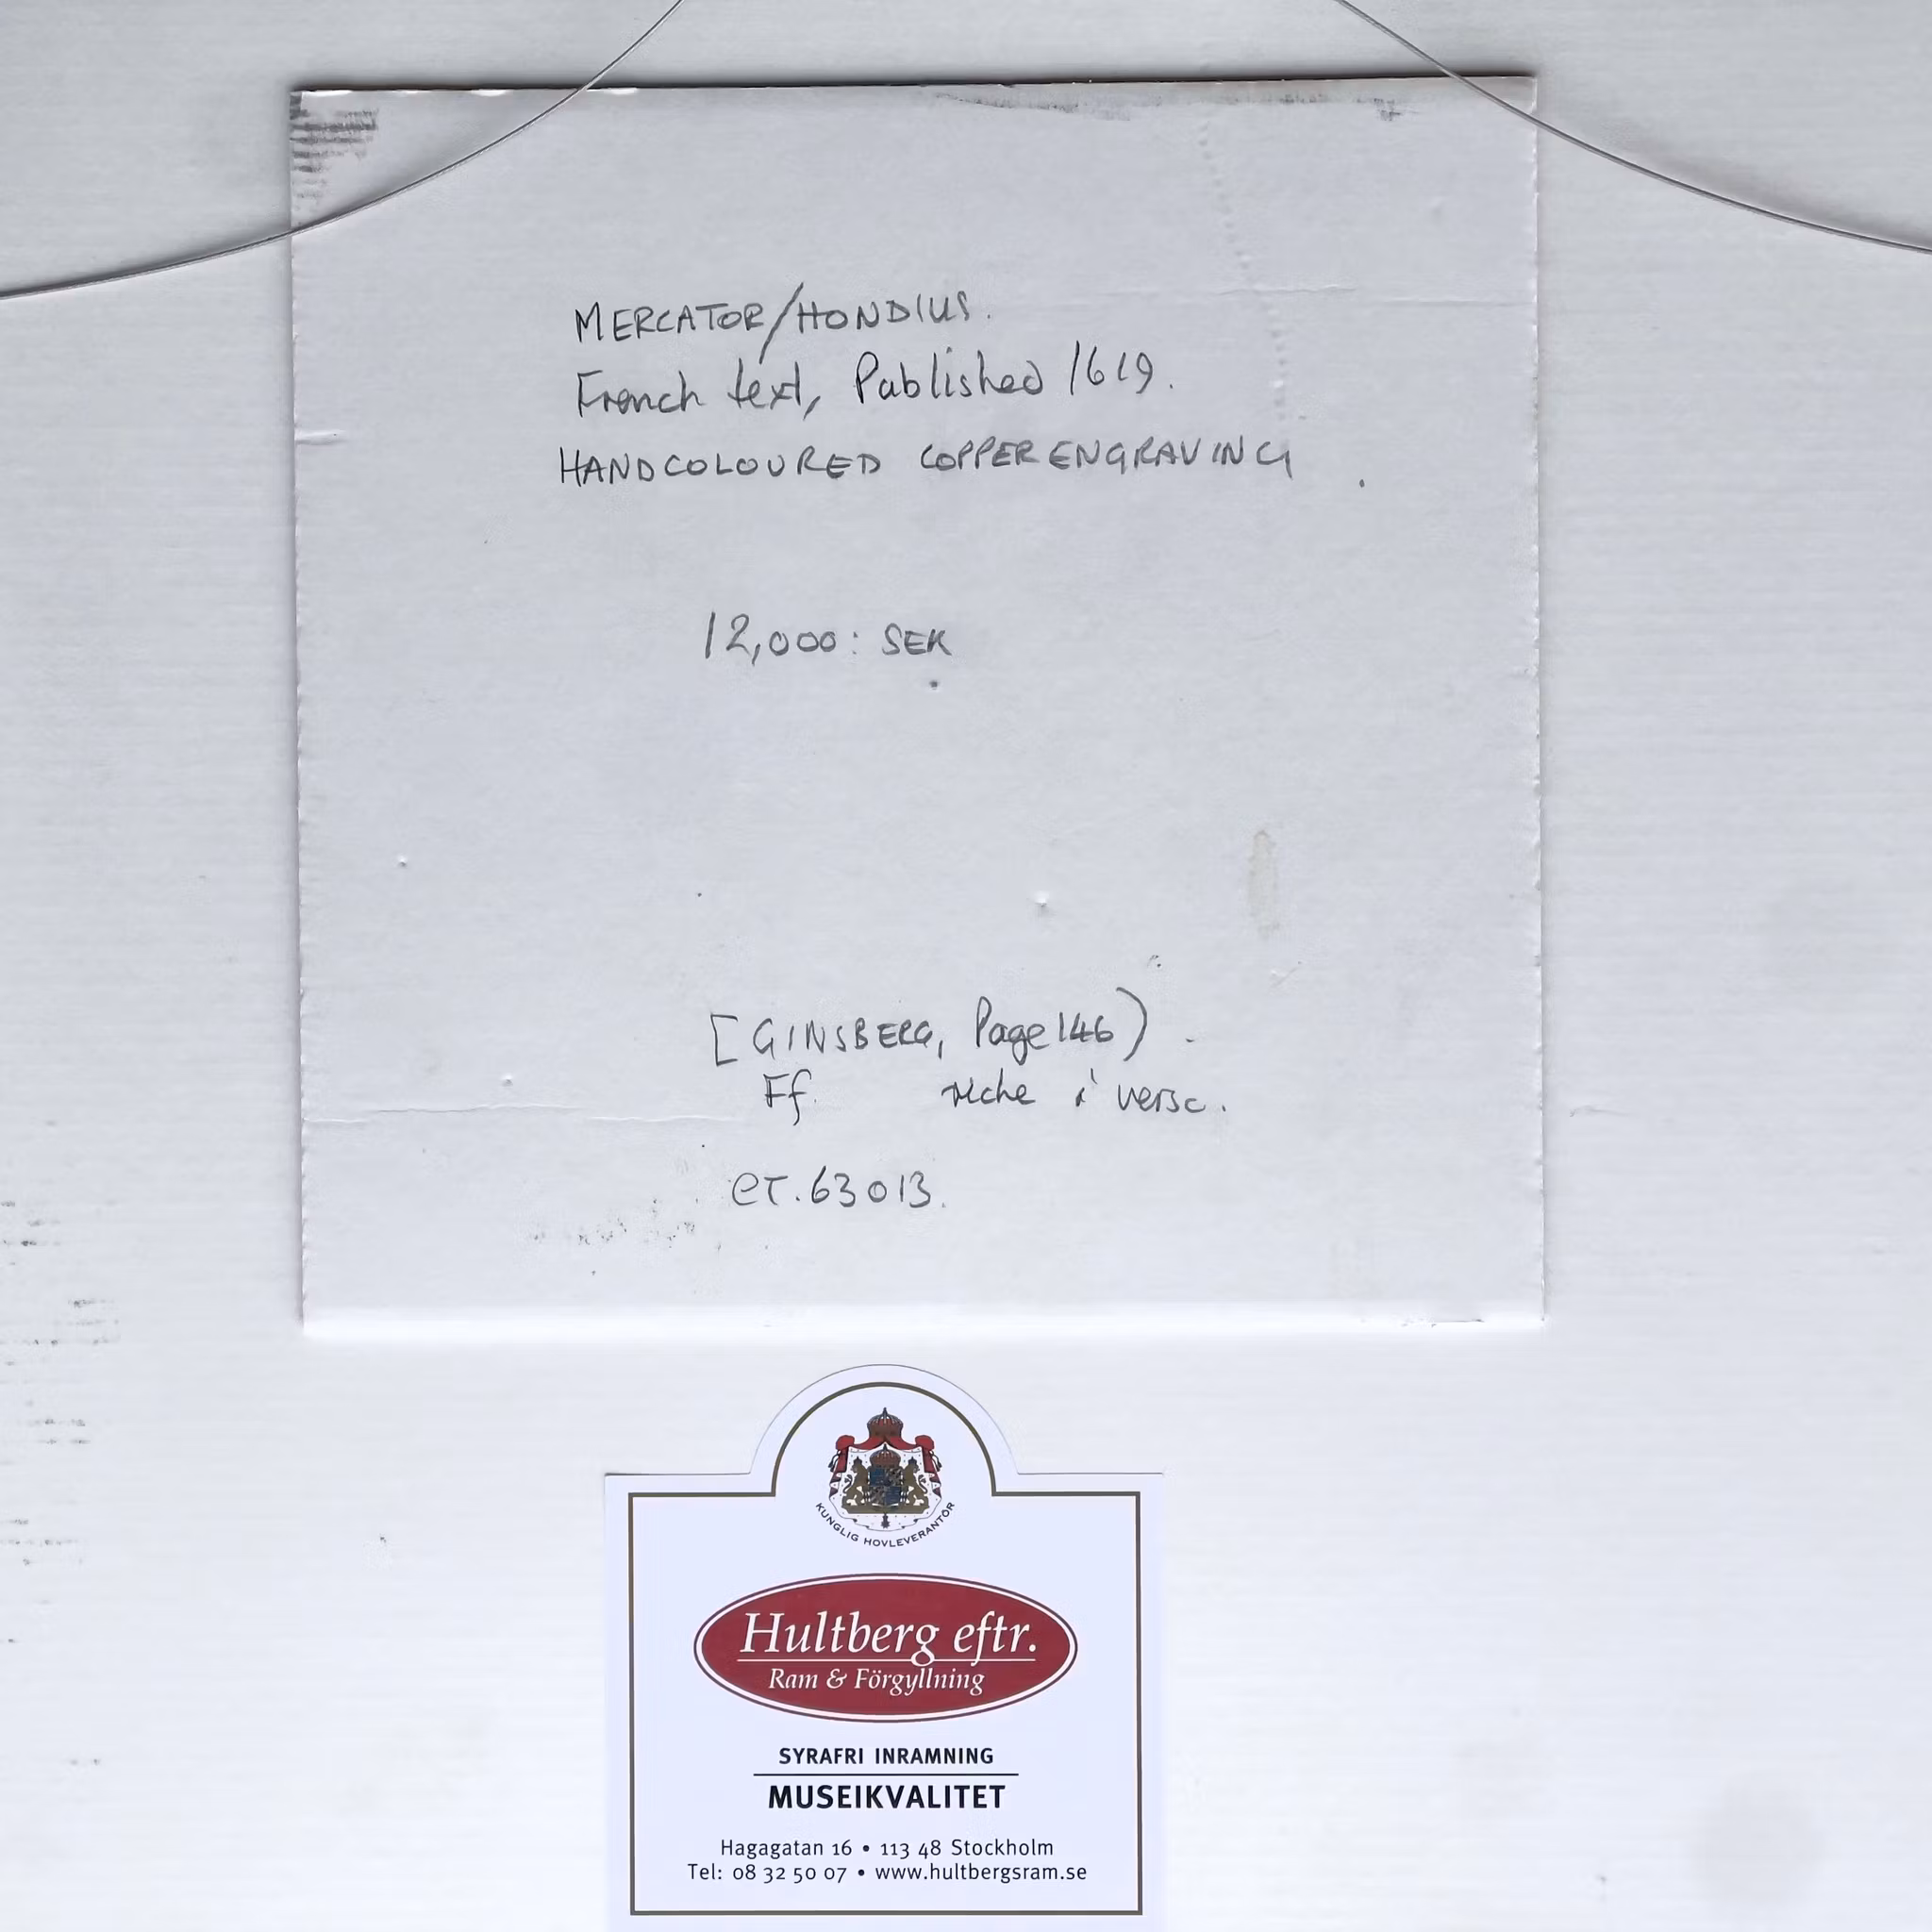 MERCATOR/HONDIUS.
French text, Published 1619.
HANDCOLOURED COPPERENGRAVING.
12,000: SEK
[GINSBERG, Page 146).
Ff.
et.63013.
KUNGLIG HOVLEVERANTÖR
Hultberg eftr.
Ram & Förgyllning
SYRAFRI INRAMNING
MUSEIKVALITET
Hagagatan 16 • 113 48 Stockholm
Tel: 08 32 50 07 • www.hultbergsram.se